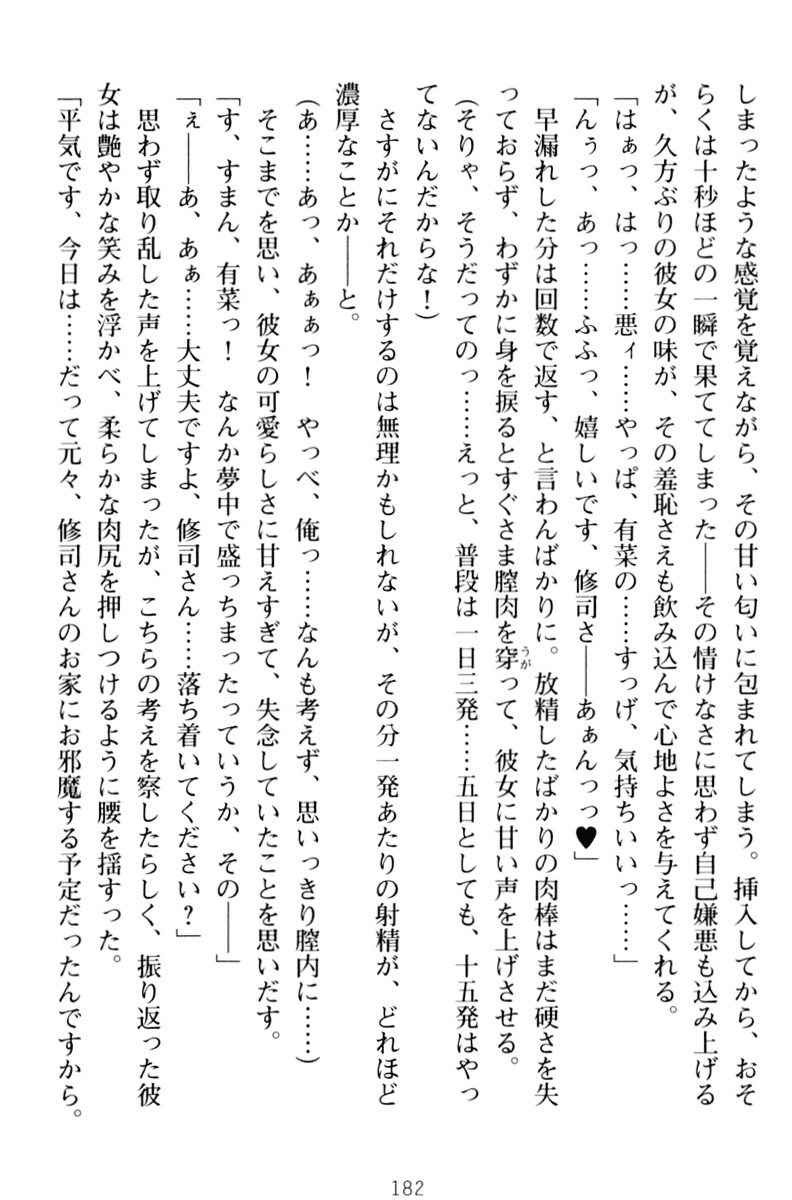 しまったような感覚を覚えながら、その甘い匂いに包まれてしまう。挿入してから、おそ
らくは十秒ほどの一瞬で果ててしまった――その情けなさに思わず自己嫌悪も込み上げる
が、久方ぶりの彼女の味が、その羞恥さえも飲み込んで心地よさを与えてくれる。
「はぁっ、はっ……悪ィ……やっぱ、有菜の……すっげ、気持ちいいっ……」
「んぅっ、あっ……ふふっ、嬉しいです、修司さ――あぁんっっ♥」
早漏れした分は回数で返す、と言わんばかりに。放精したばかりの肉棒はまだ硬さを失
っておらず、わずかに身を捩るとすぐさま膣肉を穿うがって、彼女に甘い声を上げさせる。
(そりゃ、そうだってのっ……えっと、普段は一日三発……五日としても、十五発はやっ
てないんだからな！)
さすがにそれだけするのは無理かもしれないが、その分一発あたりの射精が、どれほど
濃厚なことか――と。
(あ……あっ、あぁぁっ！　やっべ、俺っ……なんも考えず、思いっきり膣内に……)
そこまでを思い、彼女の可愛らしさに甘えすぎて、失念していたことを思いだす。
「す、すまん、有菜っ！　なんか夢中で盛っちまったっていうか、その――」
「ぇ――あ、あぁ……大丈夫ですよ、修司さん……落ち着いてください？」
思わず取り乱した声を上げてしまったが、こちらの考えを察したらしく、振り返った彼
女は艶やかな笑みを浮かべ、柔らかな肉尻を押しつけるように腰を揺すった。
「平気です、今日は……だって元々、修司さんのお家にお邪魔する予定だったんですから。
182